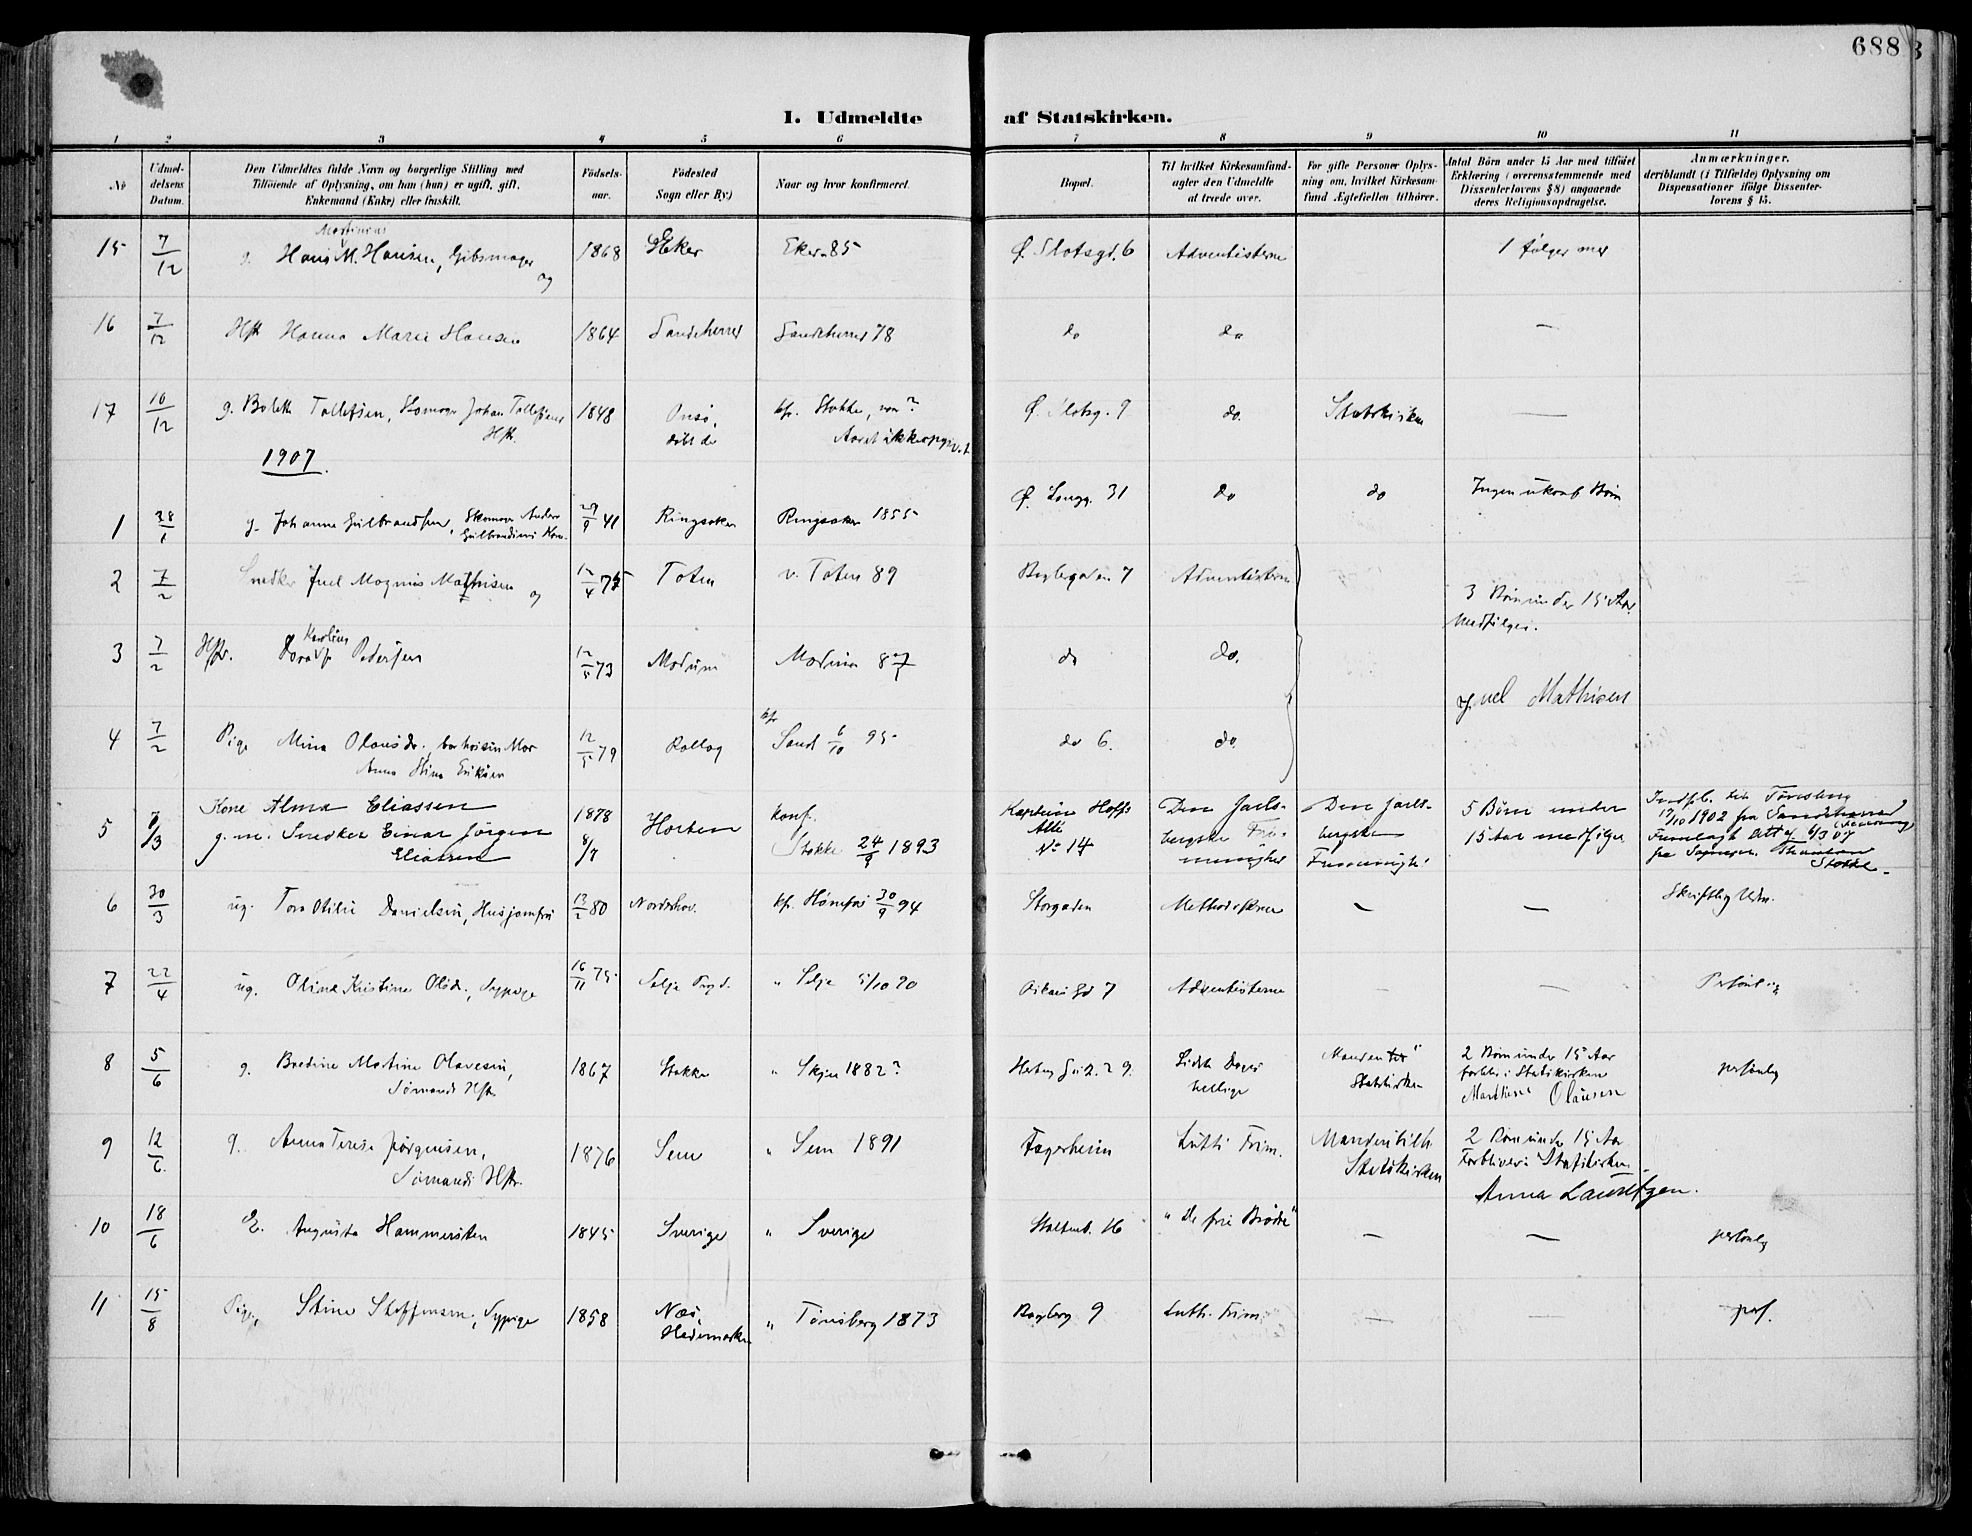 688
I. Udmeldte af Statskirken.
1 2 3 4 5 6 7 8 9 10 11
№
Udmeldelsens Datum.
Den Udmeldtes fulde Navn og borgerlige Stilling med Tilføiende af Oplysning, om han (hun) er ugift, gift, Enkemand (Enke) eller fraskilt.
Fødselsaar.
Fødested Sogn eller By)
Naar og hvor konfirmeret.
Bopæl.
Til hvilket Kirkesamfund agter den Udmeldte at træde over.
For gifte Personer Oplysning om, hvilket Kirkesamfund Ægtefællen tilhører.
Antal Børn under 15 Aar med tilføiet Erklæring (overensstemmende med Dissenterlovens § 8) angaaende deres Religionsopdragelse.
Anmærkninger, deriblandt (i Tilfælde) Oplysning om Dispensationer ifølge Dissenterlovens § 15.
Martinius
15 7/12 g. Hans M. Hansen, Gibsmager og 1868 Eker Eker 85 Ø. Slotsgd. 6 Adventisterne 1 følger med
16 7/12 Hst Hanna Marie Hansen 1864 Sandeherred Sandeherred 78 do do —
17 10/12 g. Bolette Tollefsen, Skomager Johan Tollefsens Hst. 1848 Onsø, døbt do kf. Stokke, naar? Aaret ikke opgivet Ø. Slotsg. 9 do. Statskirken —
1907.
1 28/1 g. Johanne Gulbrandsen, Skomager Anders Gulbrandsens Kone 29/9 41 Ringsaker Ringsaker 1855 Ø. Langg. 31 do do Ingen ukonf Børn
2 7/2 Snedker Juel Magnus Mathisen og 12/4 75 Toten v. Toten 89 Baglergaden 7 Adventisterne 3 Børn under 15 Aar Medfølger.
Karoline
3 7/2 Hstr. Pedersen 12/5 73 Modum Modum 87 do do.
Juel Mathisen
4 7/2 Pige Mina Olausdr. bor hos sin Mor Anna Stina Eriksen 12/5 79 Rollag kf Sand 6/10 95 do 6. do.
5 7/3 Kone Alma Eliassen g. m. Snedker Einar Jørgen Eliassen 1878 8/7 Horten Konf. Stokke 24/9 1893 Kaptein Hoffs Allé No 14 Den Jarlsbergske Frimenighed Den Jarlsbergske Frimenigh. 5 Børn under 15 Aar medfølger Indfl. til Tønsberg 17/10 1902 fra Sandeherred Fremlagt Att af 6/3 07 fra Sognepr. Stokke.
6 30/3 ug. Tora Otilie Danielsen, Husjomfru 13/2 80 Norderhov. kf. Hønefos 30/9 94 Storgaden Methodisterne — — Skriftlig Udm.
7 22/4 ug. Olina Kristine Olsdr., Sypige 16/11 75 Selje " Selje 5/10 90 7 Adventisterne — — Personlig
8 5/6 g. Bredine Martine Olavesen, Sømands Hstr 1867 Stokke " Skjee 1882? 29. Sidste Dages hellige Manden Statskirken 2 Børn under 15 Aar forbli i Statskirken Olausen personlig
9 12/6 g. Anna Terese Jørgensen, Sømands Hstr. 1876 Sem " Sem 1891 Fagerheim Luth Frim. Manden tilh Statskirken 2 Børn under 15 Aar Forbliver i Statskirken. Anna
10 18/6 E. Augusta Hammersten 1845 Sverige " Sverige Stoltenb. 16 "De frie Brødre" — — personlig
11 15/8 Pige, Stine Steffensen, Sypige 1858 Næs, Hedemarken " Tønsberg 1873 Baglerg 9 Luth. Frim. — — pers.